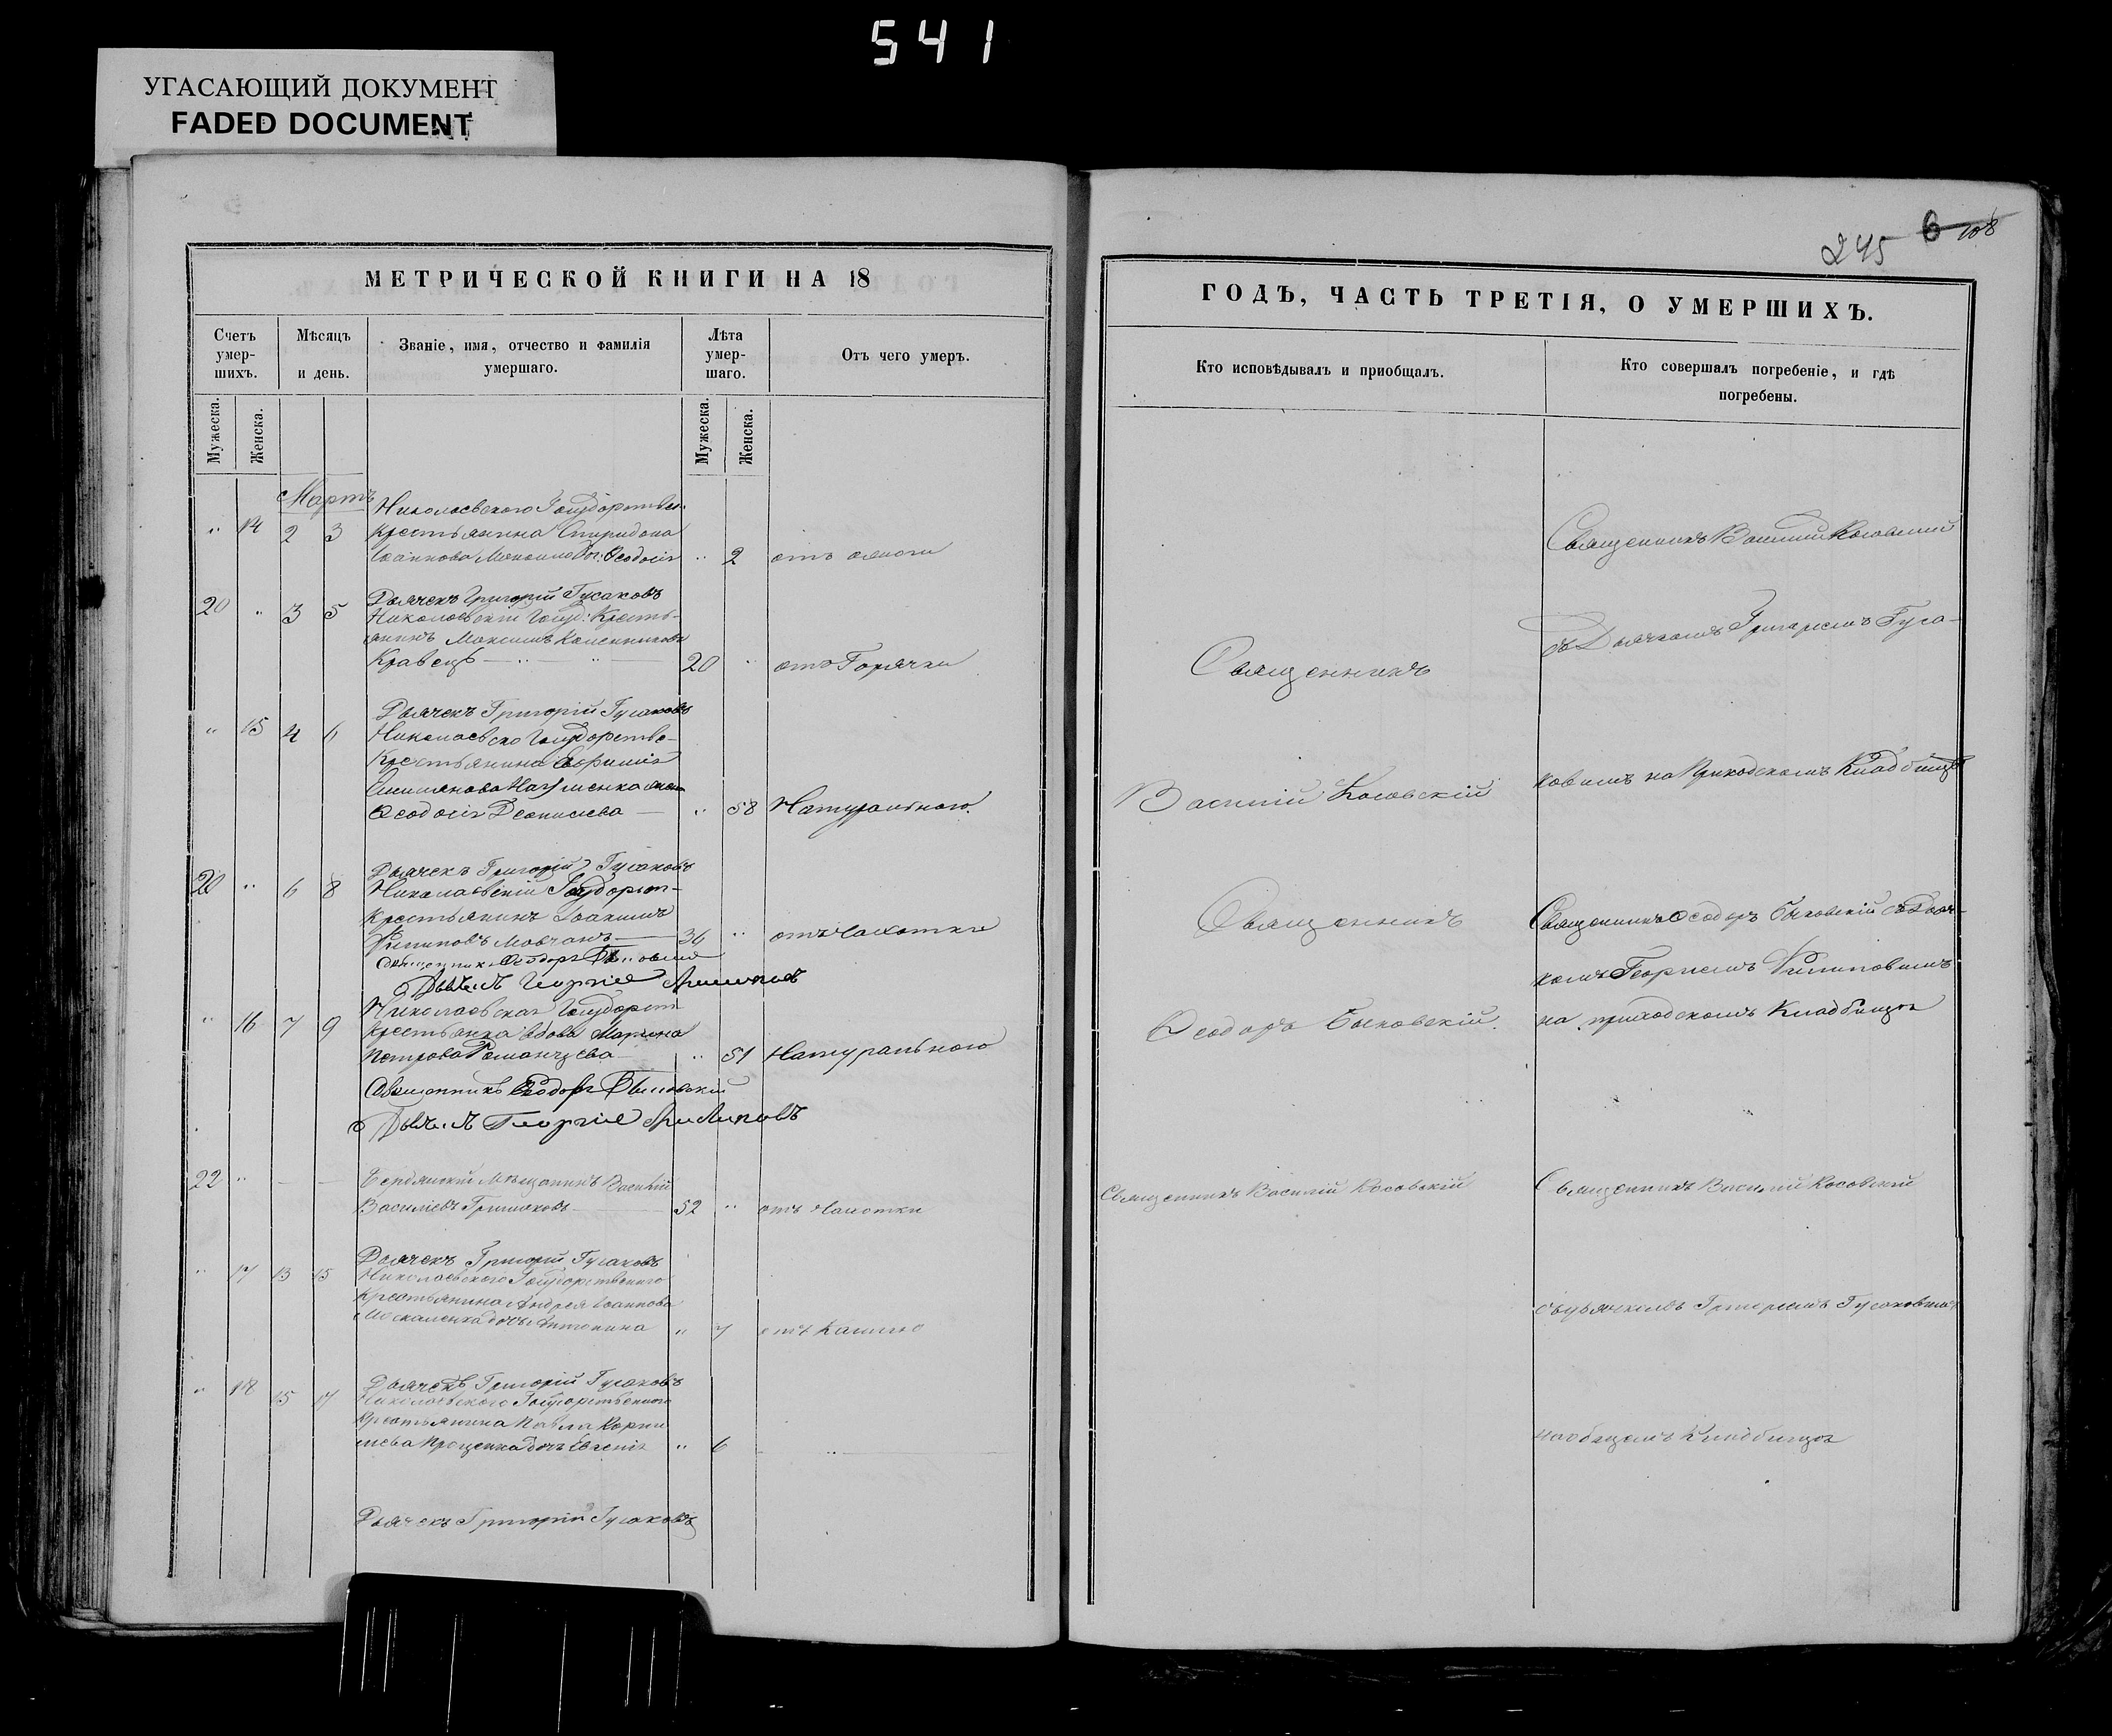 541
УГАСАЮЩИЙ ДОКУМЕНТ
FADED DOCUMENT
245 6 108
МЕТРИЧЕСКОЙ КНИГИ НА 18
Счетъ умер-шихъ.
Мѣсяцъ и день.
Званіе, имя, отчество и фамилія умершаго.
Лѣта умер-шаго.
Отъ чего умеръ.
Мужеска.
Женска.
Мужеска.
Женска.
Мартъ
Николаевского Государствен.
" 14 2 3 Крестьянина Спиридона
Іоаннова Феодосія " 2 отъ
Дьячекъ Григорій Гусаковъ
20 " 3 5 Николаевскій Госуд: Кресть-
янинъ Максимъ
Кравецъ 20 " отъ Горячки
Дьячекъ Григорій Гусаковъ
" 15 4 6 Николаевско Государстве-
Крестьянина Евфимія
Науменка жена
Феодосія Деонисіева " 58 Натурального.
Дьячекъ Григорій Гусаковъ
" 6 8 Николаевскій Государст-
Крестьянинъ Іоакимъ
Филиповъ Мовчанъ 36 " отъ Чахотки
Священникъ Феодоръ
Дьячекъ Георгій
" 16 7 9 Николаевская Государст
Крестьянка вдова Марина
Петрова Романцева " 51 Натурального
Священникъ Феодоръ
Дьячекъ Георгій
22 " Бердянскій Мѣщанинъ Василій
Василіевъ 52 " отъ Чахотки
Дьячекъ Григорій Гусаковъ
" 17 13 15 Николаевского Государственного
Крестьянина Андрея Іоаннова
Москаленка дочь Антонина " 7 отъ Кашлю
Дьячекъ Григорій Гусаковъ
" 18 15 17 Николаевского Государственного
Крестьянина Павла Корни
лиева Проценка дочь Евгенія " 6 "
Дьячекъ Григорій Гусаковъ
ГОДЪ, ЧАСТЬ ТРЕТІЯ, О УМЕРШИХЪ.
Кто исповѣдывалъ и приобщалъ.
Кто совершалъ погребеніе, и гдѣ погребены.
Священникъ Василій Косовскій
съ Дьячкомъ Григоріемъ Гуса-
Священникъ
Василій Косовскій
ковымъ на Приходскомъ Кладбищѣ
Священникъ
Священникъ Феодоръ Быковскій съ Дьяч-
комъ Георгіемъ Филиповымъ
Феодоръ Быковскій.
на приходскомъ Кладбищѣ
Священникъ Василій Косовскій
Священникъ Василій Косовскій
съ дьячкомъ Григоріемъ Гусаковымъ
на общемъ Кладбищѣ